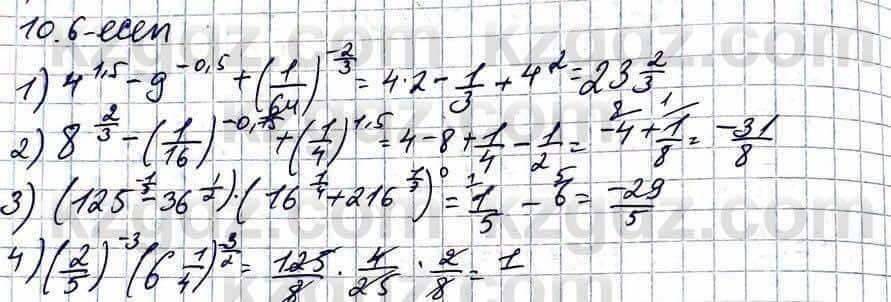 10.6-есеп
1) 4^{1,5} - 9^{-0,5} + (1/64)^{-2/3} = 4·2 - 1/3 + 4^2 = 23 2/3
2) 8^{2/3} - (1/16)^{-0,75} + (1/4)^{1,5} = 4 - 8 + 1/4 - 1/2 = -4 + 1/8 = -31/8
3) (125^{-1/3} - 36^{1/2}) · (16^{1/4} + 216^{1/3})^0 = 1/5 - 6 = -29/5
4) (2/5)^{-3} (6 1/4)^{-3/2} = 125/8 · 4/25 · 2/8 = 1
kzgdz.com